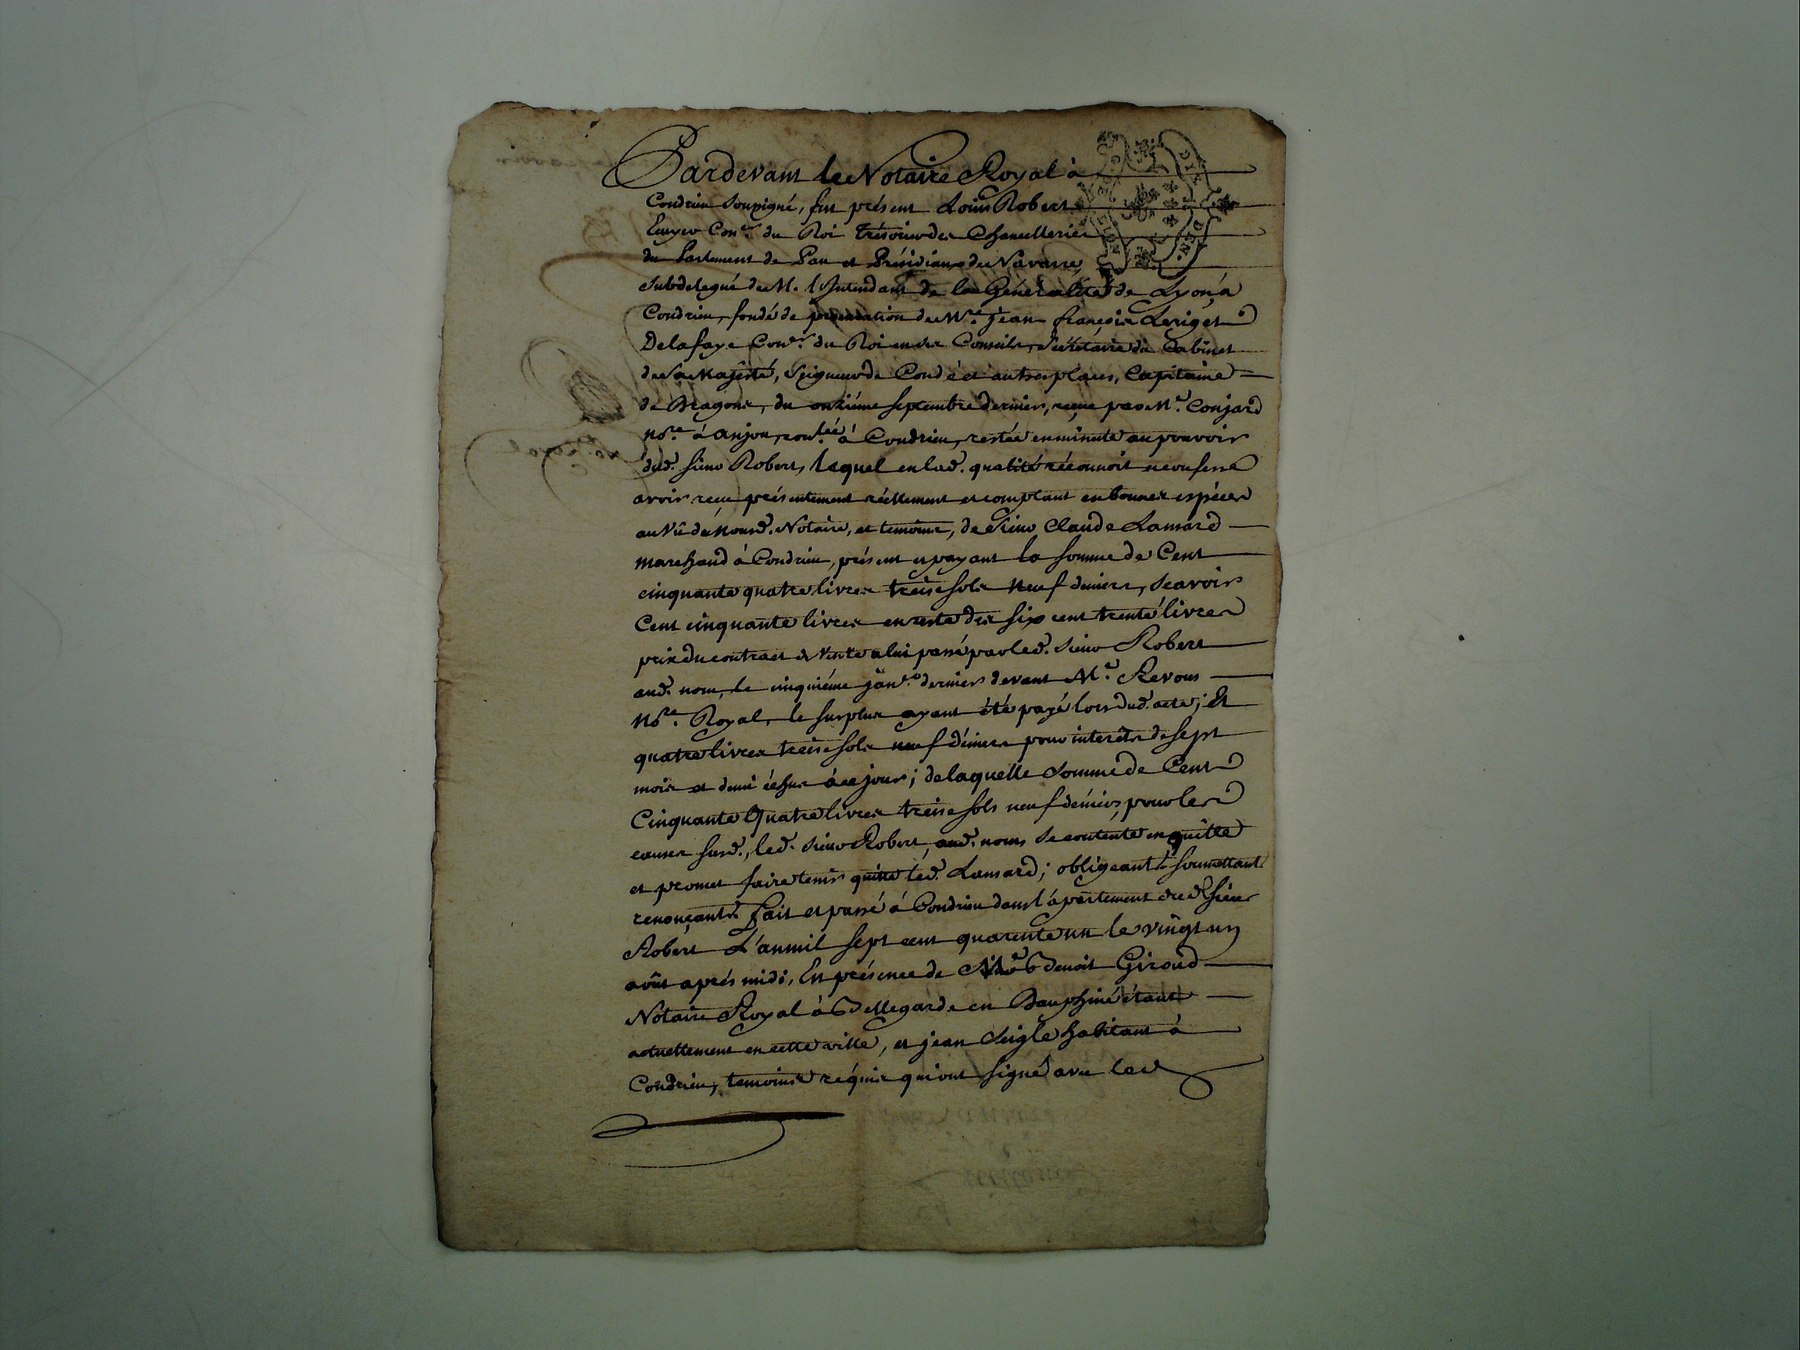 Pardevant le Notaire Royal à
Condrieu Soussigné, fut présent Louis Robert
Ecuyer Con.er du Roi Trésorier des Chancelleries
du Parlement de Pau et Présidiaux de Navarre,
Subdelegué de M. l'Intendant de la Généralité de Lyon à
Condrieu, fondé de procuration de M.re Jean françois Leriget
Delafaye Con.er du Roi en ses Conseils, Secrétaire du Cabinet
de Sa Majesté, Seigneur de Condé et autres places, Capitaine
de Dragons, du onzième septembre dernier, reçue par M.e Conjard
no.re à Anjou, con.lée à Condrieu, restée en minute au pouvoir
dud. sieur Robert, lequel en lad. qualité réconnoit et confesse
avoir reçu présentement réellement et comptant en bonnes espéces
au vû de nousd. Notaire, et temoins, de Sieur Claude Lamard
marchand à Condrieu, présent et payant la somme de Cent
cinquante quatre livres treise sols neuf deniers, Scavoir
Cent cinquante livres en reste des six cent trente livres
prix du contract de vente a lui passé par led. Sieur Robert
aud. nom, le cinquiéme janv.er dernier devant M.e Ravous
No.re Royal, le surplus ayant été payé lors dud. acte; Et
quatre livres treise sols neuf déniers pour interêts de sept
mois et demi échus à ce jour; de laquelle Somme de Cent
Cinquante Quatre livres treise sols neuf déniers, pour les
causes susd., led. Sieur Robert, aud. nom Se contente en quitte
et promet faire tenir quitte led. Lamard; obligeant soumettant
renonçant. Fait et passé à Condrieu dans l'apartement dud. Sieur
Robert L'an mil sept cent quarente un le vingt un
août aprés midi, En présence de M.e Benoit Giroud
Notaire Royal à Bellegarde en Dauphiné étant
actuellement en cette ville, et jean Seigle habitant à
Condrieu, temoins réquis qui ont signé avec led